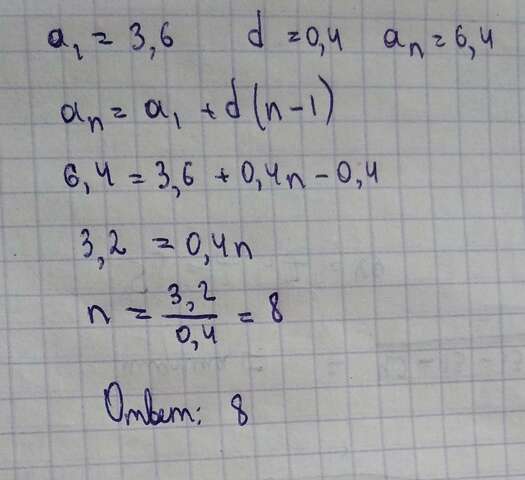 a₁ = 3,6 d = 0,4 aₙ = 6,4
aₙ = a₁ + d(n-1)
6,4 = 3,6 + 0,4n - 0,4
3,2 = 0,4n
n = 3,2/0,4 = 8
Ответ: 8